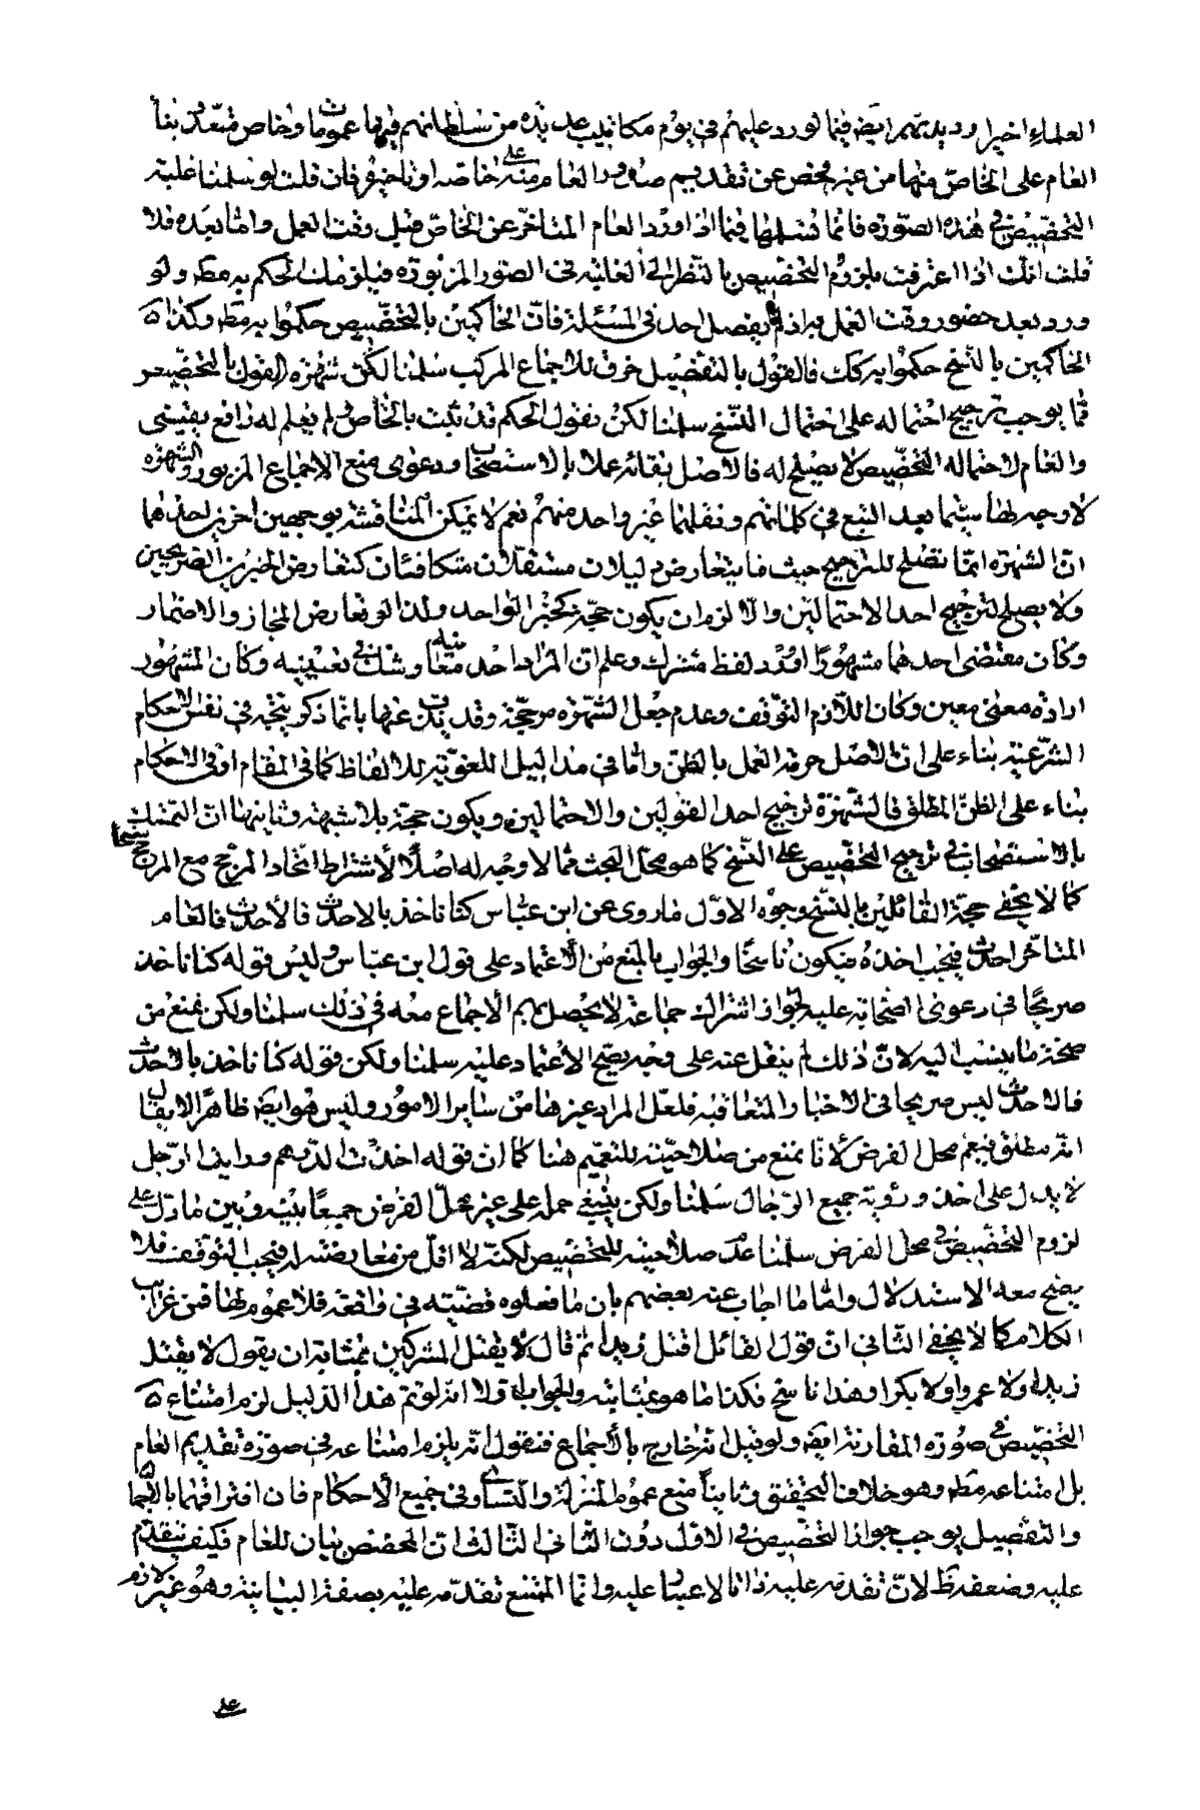 العلماء اخيرا وديدنهم ايضا فيما لو ورد عليهم في يوم مكاتيب عديدة من سلطانهم فيها عمومات وخاص متعلق بنا
العام على الخاص منها من غير فحص عن تقديم صدور العام منه على خاصه او تاخيره فان قلت لو سلمنا غلبة
التخصيص في هذه الصورة فانما نسلمها فيما اذا ورد العام المتاخر عن الخاص قبل وقت العمل واما بعده فلا
قلت انك اذا اعترفت بلزوم التخصيص بالنظر الى الغلبة في الصور المزبورة فيلزمك الحكم به مطه ولو
ورد بعد حضور وقت العمل به اذ لم يفصل احد في المسئلة فان الحاكمين بالتخصيص حكموا به مطه وكذا
الحاكمين بالنسخ حكموا به كك فالقول بالتفصيل خرق للاجماع المركب سلمنا لكن شهرة القول بالتخصيص
مما يوجب ترجيح احتماله على احتمال النسخ سلمنا لكن نقول الحكم قد ثبت بالخاص ولم يعلم له رافع يقيني
والعام لاحتماله التخصيص لا يصلح له فالاصل بقائه عملا بالاستصحاب ودعوى منع الاجماع المزبور والشهرة
لا وجه لها سيما بعد التتبع في كلماتهم ونقلهما غير واحد منهم نعم لا يمكن المناقشة بوجهين اخرين احدهما
ان الشهرة انما تصلح للترجيح حيث ما يتعارض دليلان مستقلان متكافئان كتعارض الخبرين الصريحين
ولا يصلح لترجيح احد الاحتمالين والا لزم ان يكون حجة كخبر الواحد ولذا لو تعارض المجاز والاضمار
وكان مقتضى احدهما مشهورا او ورد لفظ مشترك وعلم ان المراد احد معانيه وشك في تعيينه وكان المشهور
ارادة معنى معين وكان اللازم التوقف وعدم جعل الشهرة مرجحة وقد يذب عنها بان ما ذكر يتجه في نفس الاحكام
الشرعية بناء على ان الاصل حرمة العمل بالظن واما في مداليل اللغوية للالفاظ كما في المقام او في الاحكام
بناء على الظن المطلق فالشهرة ترجيح احد القولين والاحتمالين ويكون حجة بلا شبهة وثانيهما ان التمسك
بالاستصحاب في ترجيح التخصيص على النسخ كما هو محل البحث مما لا وجه له اصلا لاشتراط اتحاد المرجح مع المرجح
كما لا يخفى حجة القائلين بالنسخ وجوه الاول ما روى عن ابن عباس كنا ناخذ بالاحدث فالاحدث فالعام
المتاخر احدث فيجب اخذه فيكون ناسخا والجواب بالمنع من الاعتماد على قول ابن عباس وليس قوله كنا ناخذ
صريحا في دعوى اصحابه عليه لجواز اشتراك جماعة لا يحصل بهم الاجماع معه في ذلك سلمنا ولكن نمنع من
صحة ما ينسب اليه لان ذلك لم ينقل عنه على وجه يصح الاعتماد عليه سلمنا ولكن قوله كنا ناخذ بالاحدث
فالاحدث ليس صريحا في الاخبار المتعاقبة فلعل المراد غيرها من ساير الامور وليس هو ايضا ظاهرا لا يقال
انه مطلق فيعم محل الفرض لانا نمنع من صلاحيته للتعميم هنا كما ان قوله اخذت الدرهم ورايت الرجل
لا يدل على اخذ ورؤية جميع الرجال سلمنا ولكن ينبغي حمله على غير محل الفرض جمعا بينه وبين ما دل على
لزوم التخصيص في محل الفرض سلمنا عدم صلاحيته للتخصيص لكنه لا اقل من معارضته له فيجب التوقف فلا
يصح معه الاستدلال واما ما اجاب عنه بعضهم بان ما فعلوه قضية في واقعة فلا عموم لها فمن غرايب
الكلام كما لا يخفى الثاني ان قول القائل اقتل زيدا ثم قال لا يقتل المشركين بمثابة ان يقول لا يقتل
زيدا ولا عمروا ولا بكرا وهذا ناسخ فكذا ما هو بمثابته والجواب اولا انه لو تم هذا الدليل لزم امتناع
التخصيص في صورة المقارنة ايضا ولو قيل انه خارج بالاجماع فنقول انه يلزم امتناعه في صورة تقديم العام
بل امتناعه مطه وهو خلاف التحقيق وثانيا منع عموم المنزلة والتساوي في جميع الاحكام فان افتراقهما بالاجمال
والتفصيل يوجب جواز التخصيص في الاول دون الثاني الثالث ان المخصص بيان للعام فكيف يتقدم
عليه وضعفه ظ لان تقدمه عليه ذاتا لا عبرة عليه وانما الممتنع تقدمه عليه بصفة البيانية وهو غير لازم